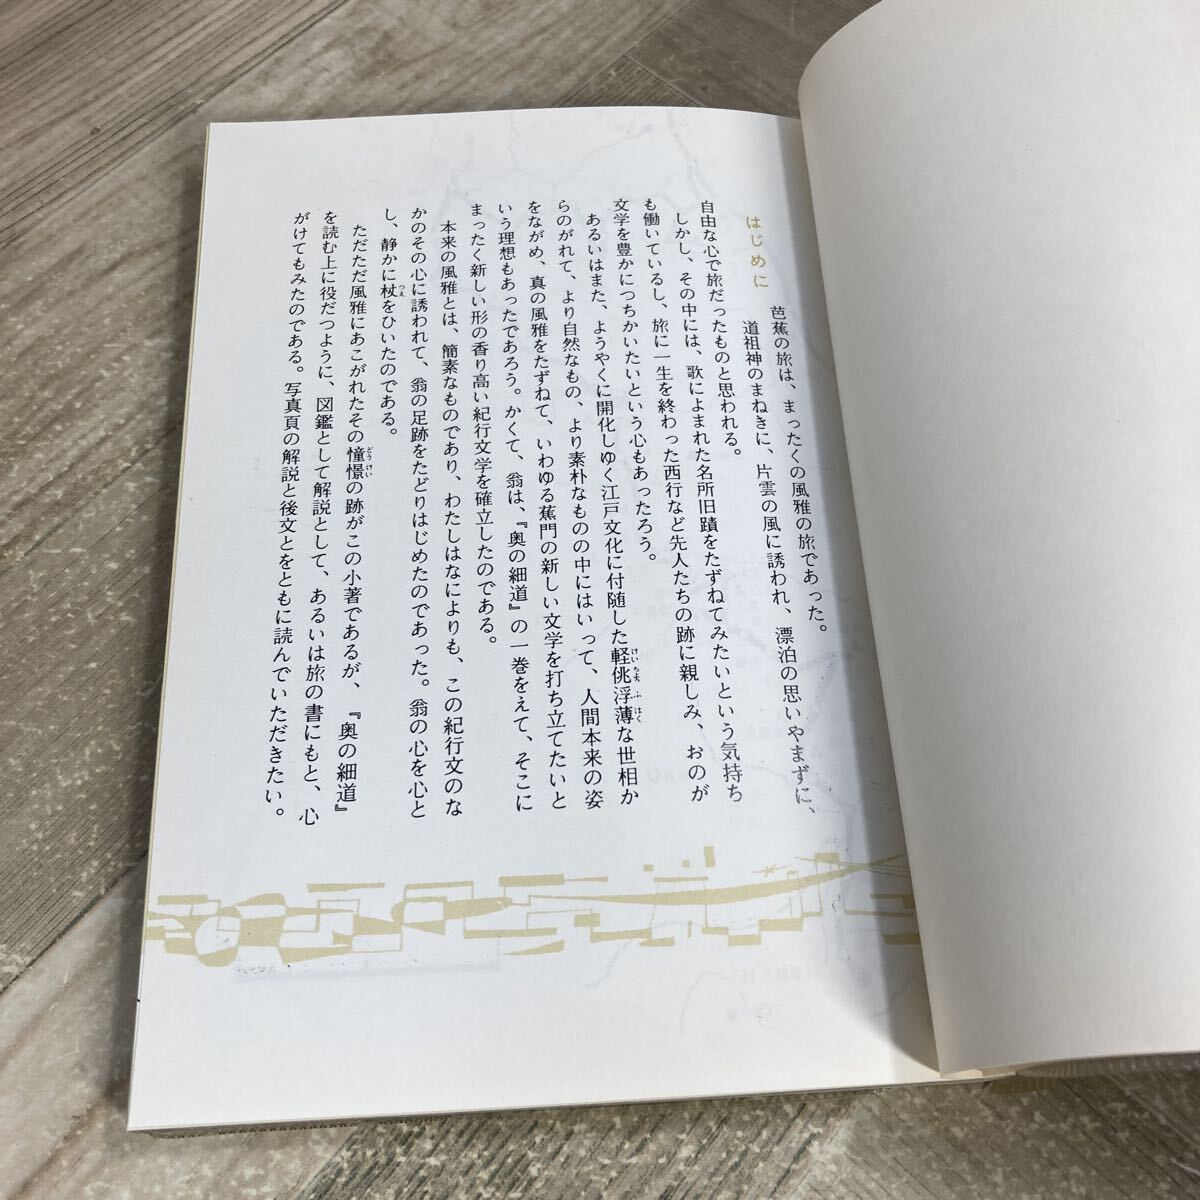 はじめに
芭蕉の旅は、まったくの風雅の旅であった。
道祖神のまねきに、片雲の風に誘われ、漂泊の思いやまずに、
自由な心で旅だったものと思われる。
しかし、その中には、歌によまれた名所旧蹟をたずねてみたいという気持ち
も働いているし、旅に一生を終わった西行など先人たちの跡に親しみ、おのが
文学を豊かにつちかいたいという心もあったろう。
あるいはまた、ようやくに開化しゆく江戸文化に付随した軽佻浮薄な世相か
らのがれて、より自然なもの、より素朴なものの中にはいって、人間本来の姿
をながめ、真の風雅をたずねて、いわゆる蕉門の新しい文学を打ち立てたいと
いう理想もあったであろう。かくて、翁は、『奥の細道』の一巻をえて、そこに
まったく新しい形の香り高い紀行文学を確立したのである。
本来の風雅とは、簡素なものであり、わたしはなによりも、この紀行文のな
かのその心に誘われて、翁の足跡をたどりはじめたのであった。翁の心を心と
し、静かに杖をひいたのである。
ただただ風雅にあこがれたその憧憬の跡がこの小著であるが、『奥の細道』
を読む上に役だつように、図鑑として解説として、あるいは旅の書にもと、心
がけてもみたのである。写真頁の解説と後文とをともに読んでいただきたい。